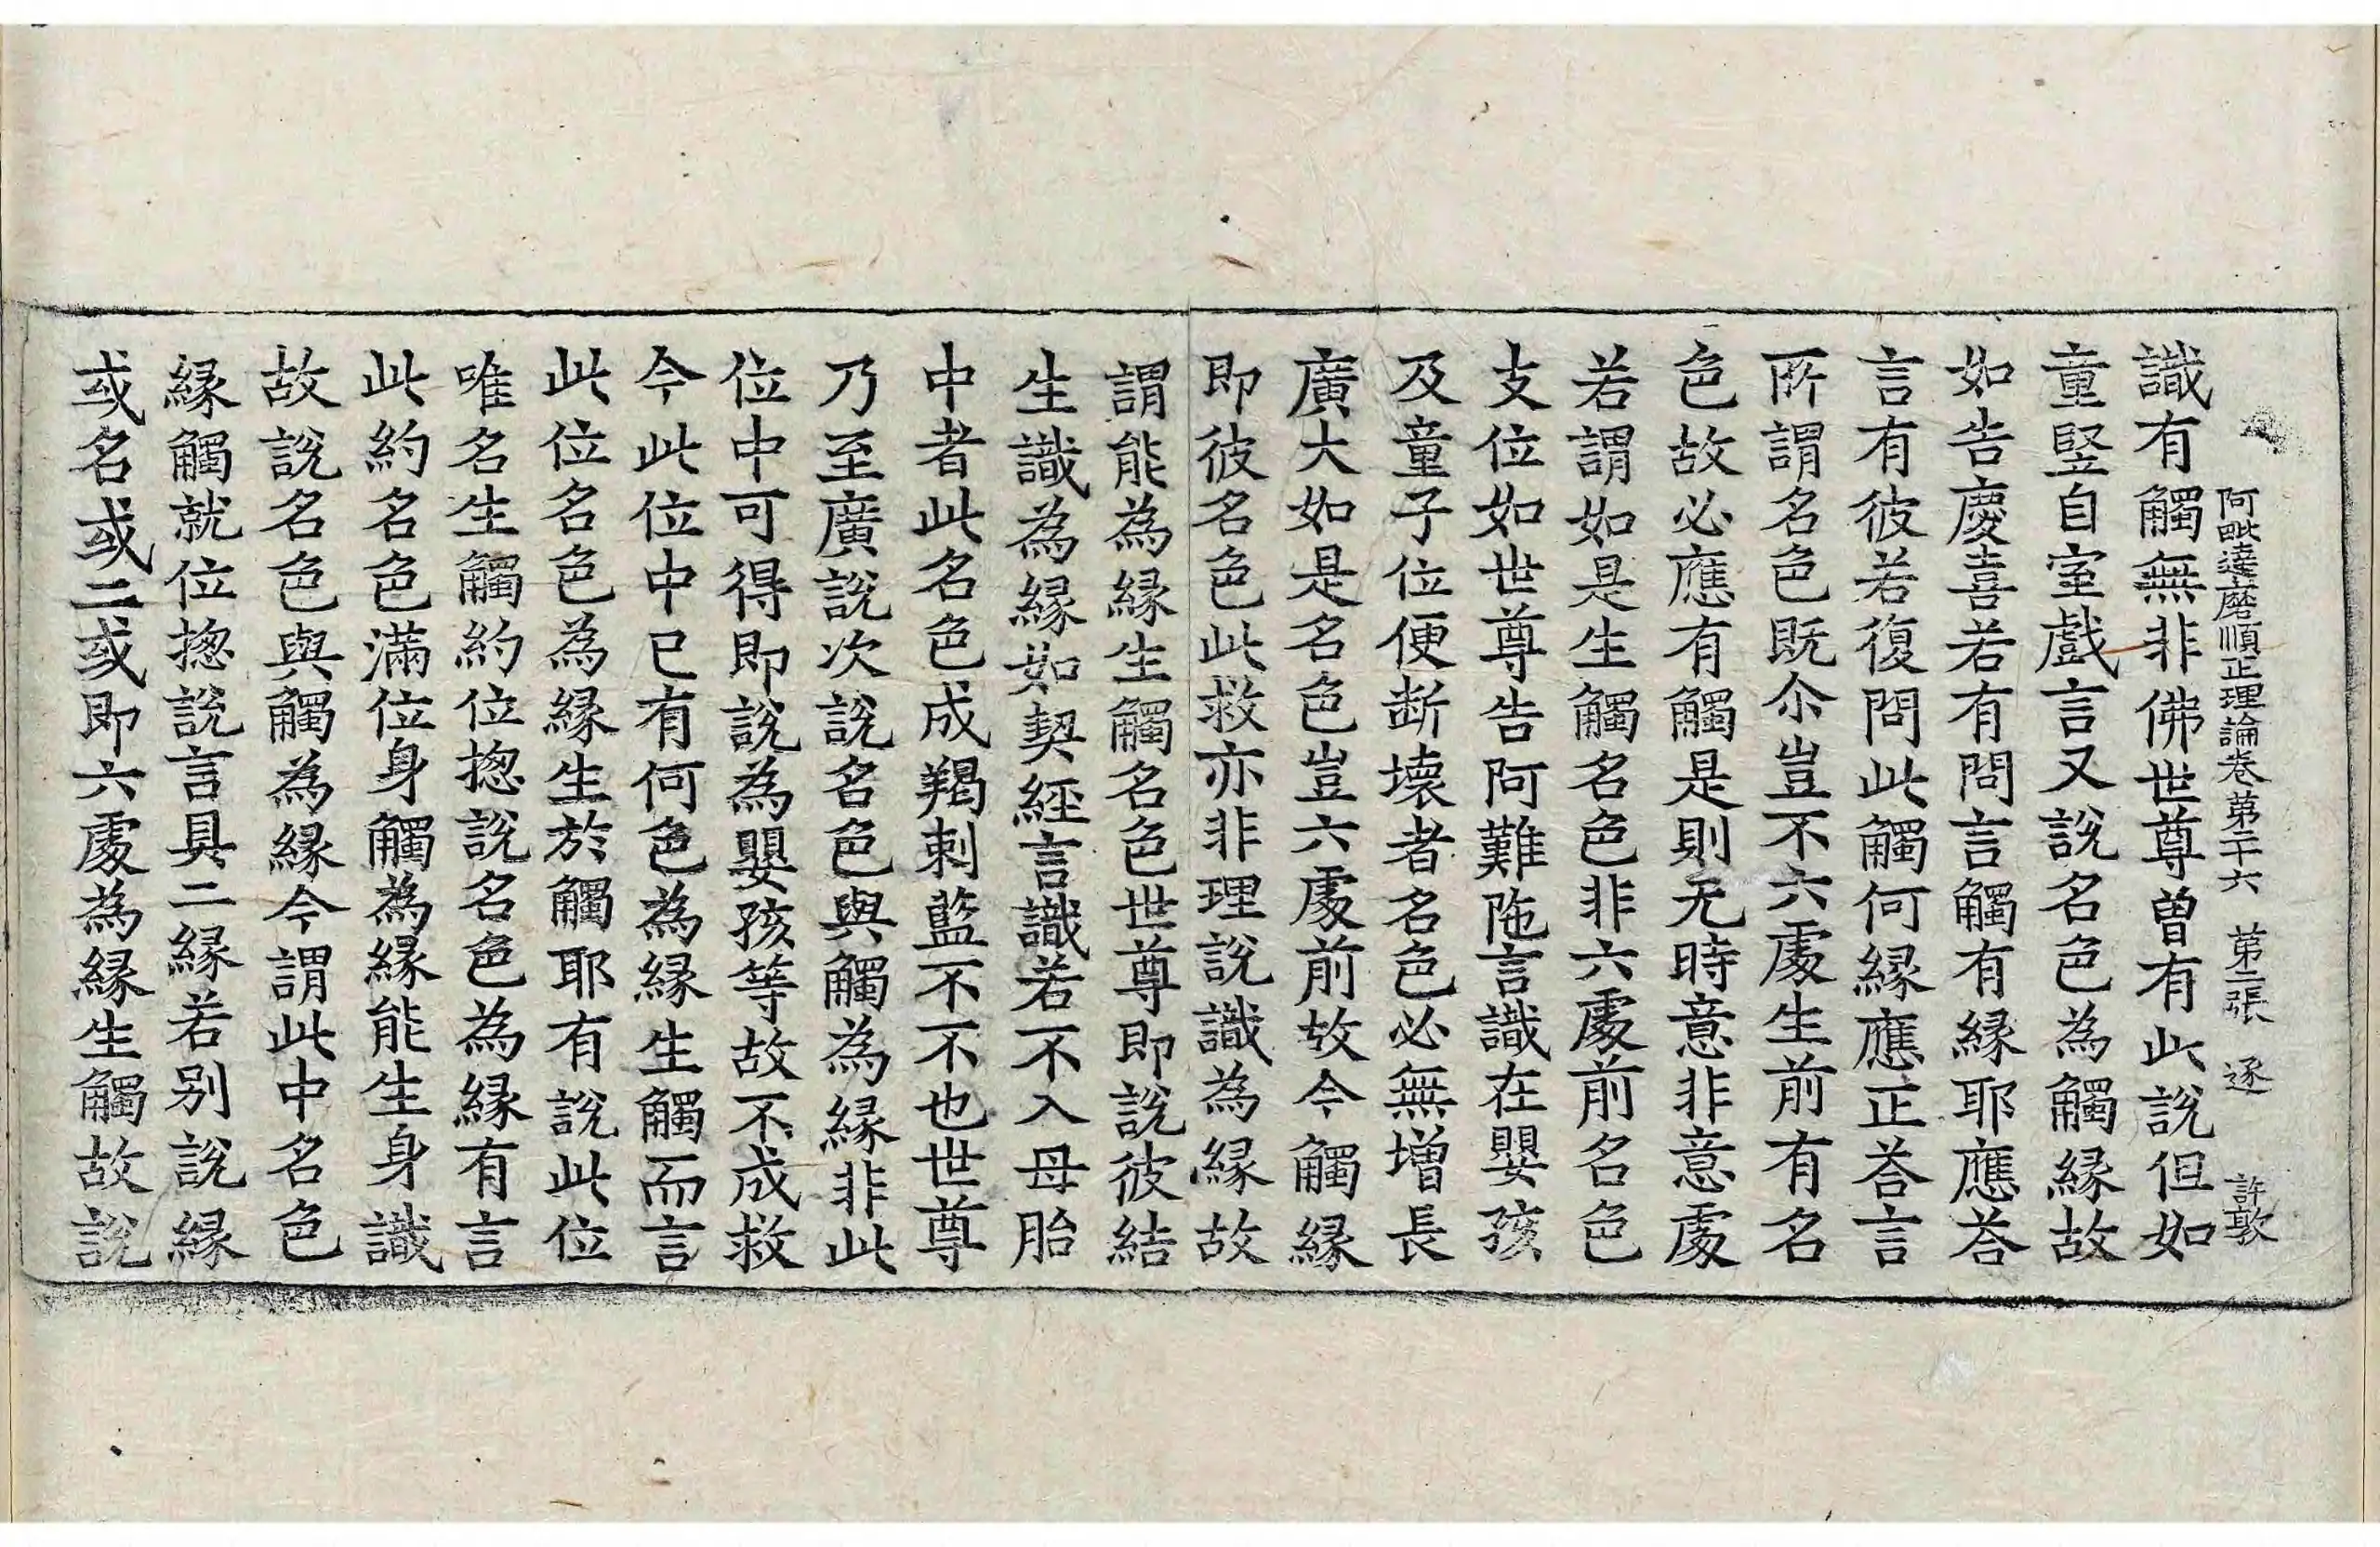 阿毗達磨順正理論卷第二十六　第二張　逐　許敦
識有觸無非佛世尊曽有此說但如
童竪自室戲言又說名色為觸縁故
如告慶喜若有問言觸有縁耶應荅
言有彼若復問此觸何縁應正荅言
所謂名色既尒豈不六處生前有名
色故必應有觸是則无時意非意處
若謂如是生觸名色非六處前名色
支位如世尊告阿難陁言識在嬰孩
及童子位便断壞者名色必無增長
廣大如是名色豈六處前故今觸縁
即彼名色此救亦非理說識為縁故
謂能為縁生觸名色世尊即說彼結
生識為縁如契經言識若不入母胎
中者此名色成羯剌藍不不也世尊
乃至廣說次說名色與觸為縁非此
位中可得即說為嬰孩等故不成救
今此位中已有何色為縁生觸而言
此位名色為縁生於觸耶有說此位
唯名生觸約位揔說名色為縁有言
此約名色滿位身觸為縁能生身識
故說名色與觸為縁今謂此中名色
縁觸就位揔說言具二縁若別說縁
或名或二或即六處為縁生觸故說